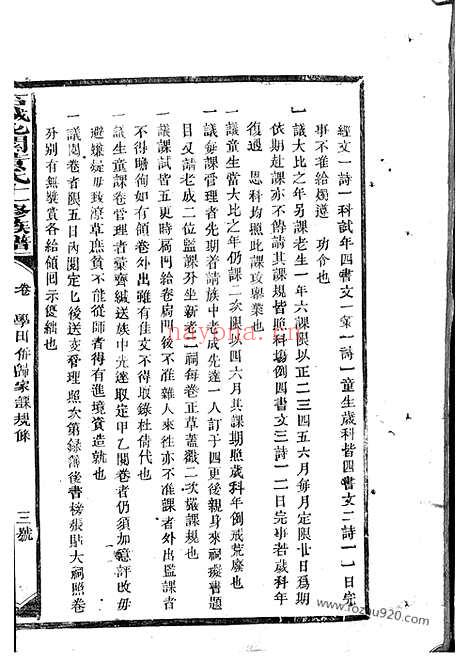 經文一詩一科試年四書文一策一詩一童生歲科皆四書文二詩一一日完
事不准給燭遵 功令也
一議大比之年另課老生一年六課限以正二三四五六月每月定限廿日爲期
依期赴課亦不傳請其課規皆照科場例四書文三詩一二日完事若歲科年
復遇 恩科均照此課攻舉業也
一議童生當大比之年仍課二次限以四六月其課期照歲科年例戒荒廢也
一議每課管理者先期着請族中老成先達一人訂于四更後親身來祠擬書題
目又請老成二位監課分坐新老二祠每卷正草蓋徽二次嚴課規也
一議課試皆五更時局門給卷局門後不准雜人來往亦不准課者外出監課者
不得瞻徇如有領卷外出雖有佳文不得取錄杜倩代也
一議生童課卷管理者彙齊緘送族中先達取定甲乙閱卷者仍須加意評改毋
避嫌疑毋致潦草庶貧不能從師者得有進境資造就也
一議閱卷者限五日內閱定七後送交管理照次第錄簿後書榜張貼大祠照卷
分別有無獎賞各給領回示優絀也
黃氏二修族譜
卷 學田備歸家課規條
三號
nayona.cn
www.fozhu920.com